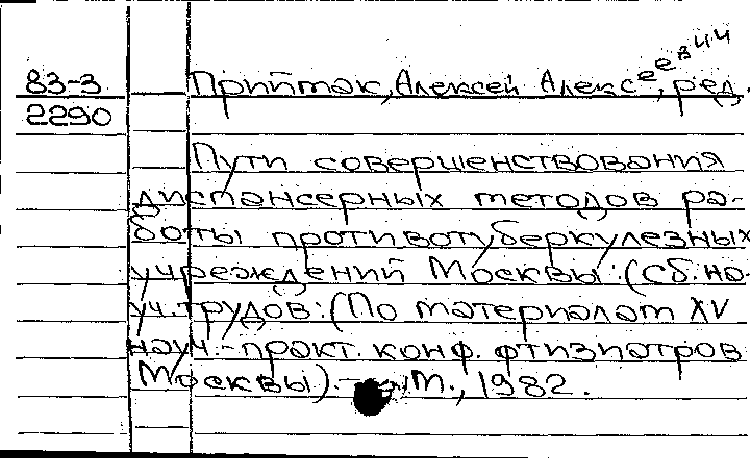 83-3 Прийmак, Алексей Алексеевич, ред.
2290
Пути совершенствования
диспансерных методов ра-
боты противотуберкулезных
учреждений Москвы: (Сб. на-
уч. трудов: (По материалам XV
науч.-практ. конф. фтизиатров
Москвы). - М., 1982.